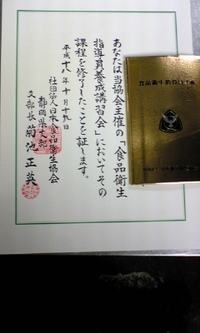 あなたは当協会主催の「食品衛生
指導員養成講習会」においてその
課程を修了したことを証します。
平成十八年十月十九日
社団法人日本食品衛生協会
静岡県支部
支部長 菊池正英